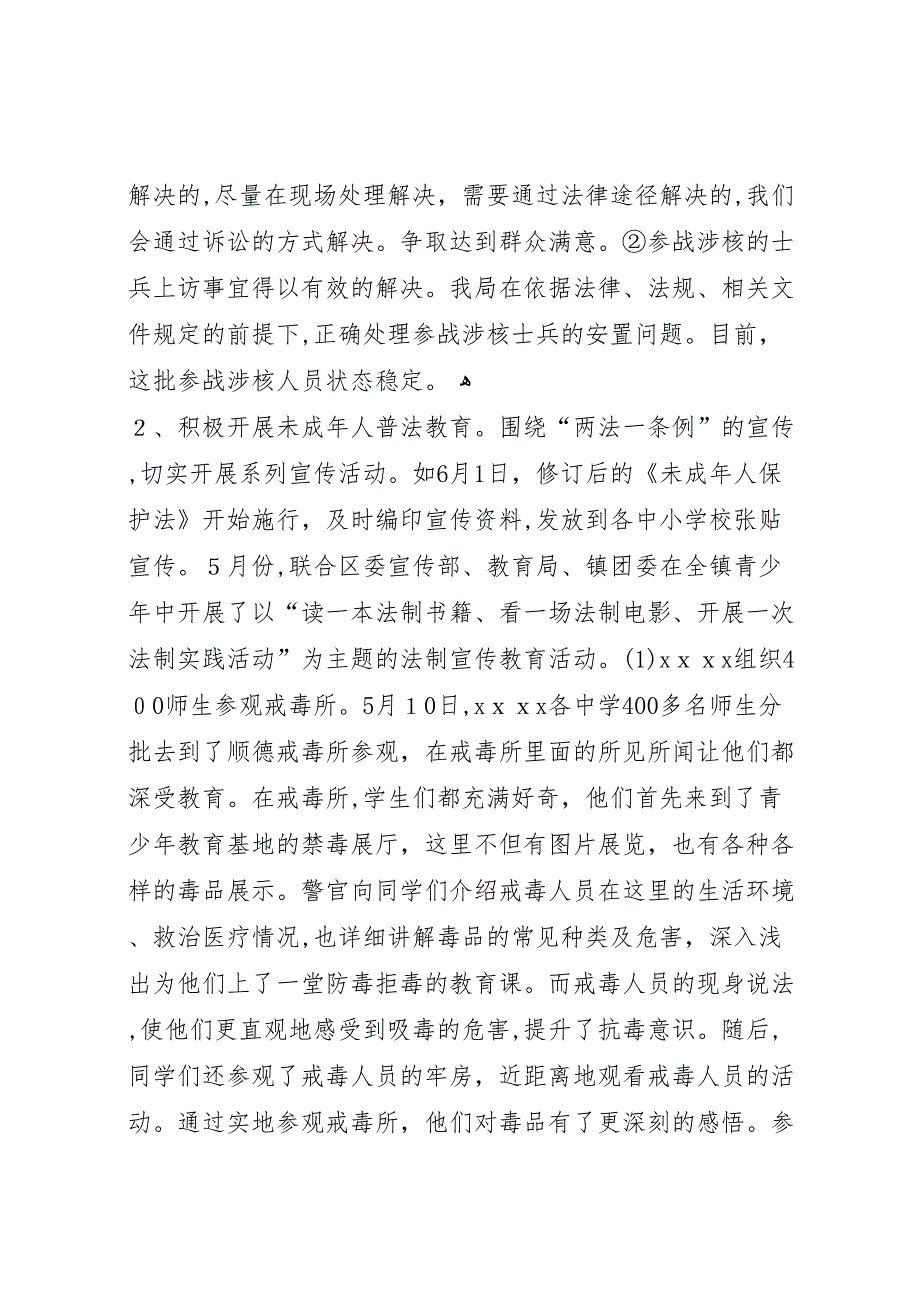 解决的,尽量在现场处理解决，需要通过法律途径解决的,我们
会通过诉讼的方式解决。争取达到群众满意。②参战涉核的士
兵上访事宜得以有效的解决。我局在依据法律、法规、相关文
件规定的前提下,正确处理参战涉核士兵的安置问题。目前，
这批参战涉核人员状态稳定。 ﻫ
２、积极开展未成年人普法教育。围绕“两法一条例”的宣传
,切实开展系列宣传活动。如6月1日，修订后的《未成年人保
护法》开始施行，及时编印宣传资料,发放到各中小学校张贴
宣传。５月份,联合区委宣传部、教育局、镇团委在全镇青少
年中开展了以“读一本法制书籍、看一场法制电影、开展一次
法制实践活动”为主题的法制宣传教育活动。(1)xｘｘx组织4
０0师生参观戒毒所。5月１0日,xｘｘx各中学400多名师生分
批去到了顺德戒毒所参观，在戒毒所里面的所见所闻让他们都
深受教育。在戒毒所,学生们都充满好奇，他们首先来到了青
少年教育基地的禁毒展厅，这里不但有图片展览，也有各种各
样的毒品展示。警官向同学们介绍戒毒人员在这里的生活环境
、救治医疗情况,也详细讲解毒品的常见种类及危害，深入浅
出为他们上了一堂防毒拒毒的教育课。而戒毒人员的现身说法
,使他们更直观地感受到吸毒的危害,提升了抗毒意识。随后,
同学们还参观了戒毒人员的牢房，近距离地观看戒毒人员的活
动。通过实地参观戒毒所，他们对毒品有了更深刻的感悟。参